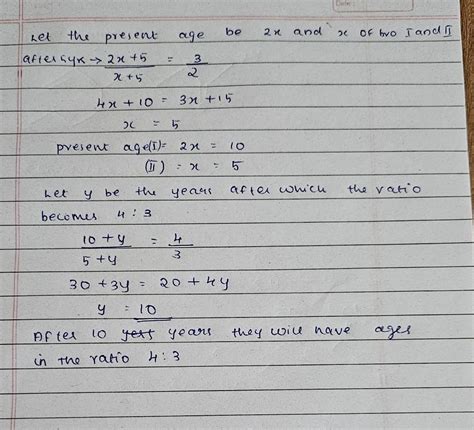 Let the present age be 2x and x of two I and II
after 5yr → 2x+5 / x+5 = 3/2
4x + 10 = 3x + 15
x = 5
present age(I) = 2x = 10
(II) = x = 5
Let y be the years after which the ratio
becomes 4 : 3
10 + y / 5 + y = 4/3
30 + 3y = 20 + 4y
y = 10
After 10 years they will have ages
in the ratio 4 : 3